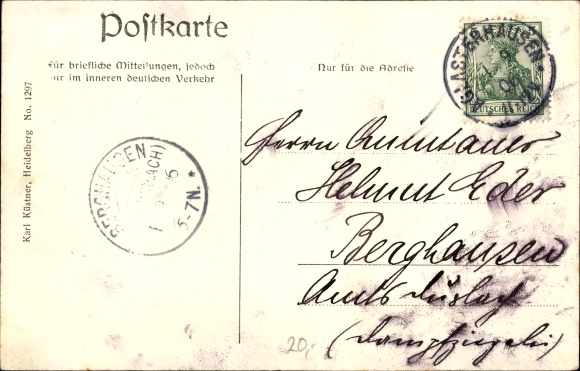 Postkarte
für briefliche Mitteilungen, jedoch
nur im inneren deutschen Verkehr
Nur für die Adresse
AGLASTERHAUSEN
DEUTSCHES REICH
Karl Küstner, Heidelberg No. 1297
BERGHAUSEN
5-7N.
Herrn
Helmut Eder
Berghausen
Amts Durlach
(Dampfziegelei)
20,-